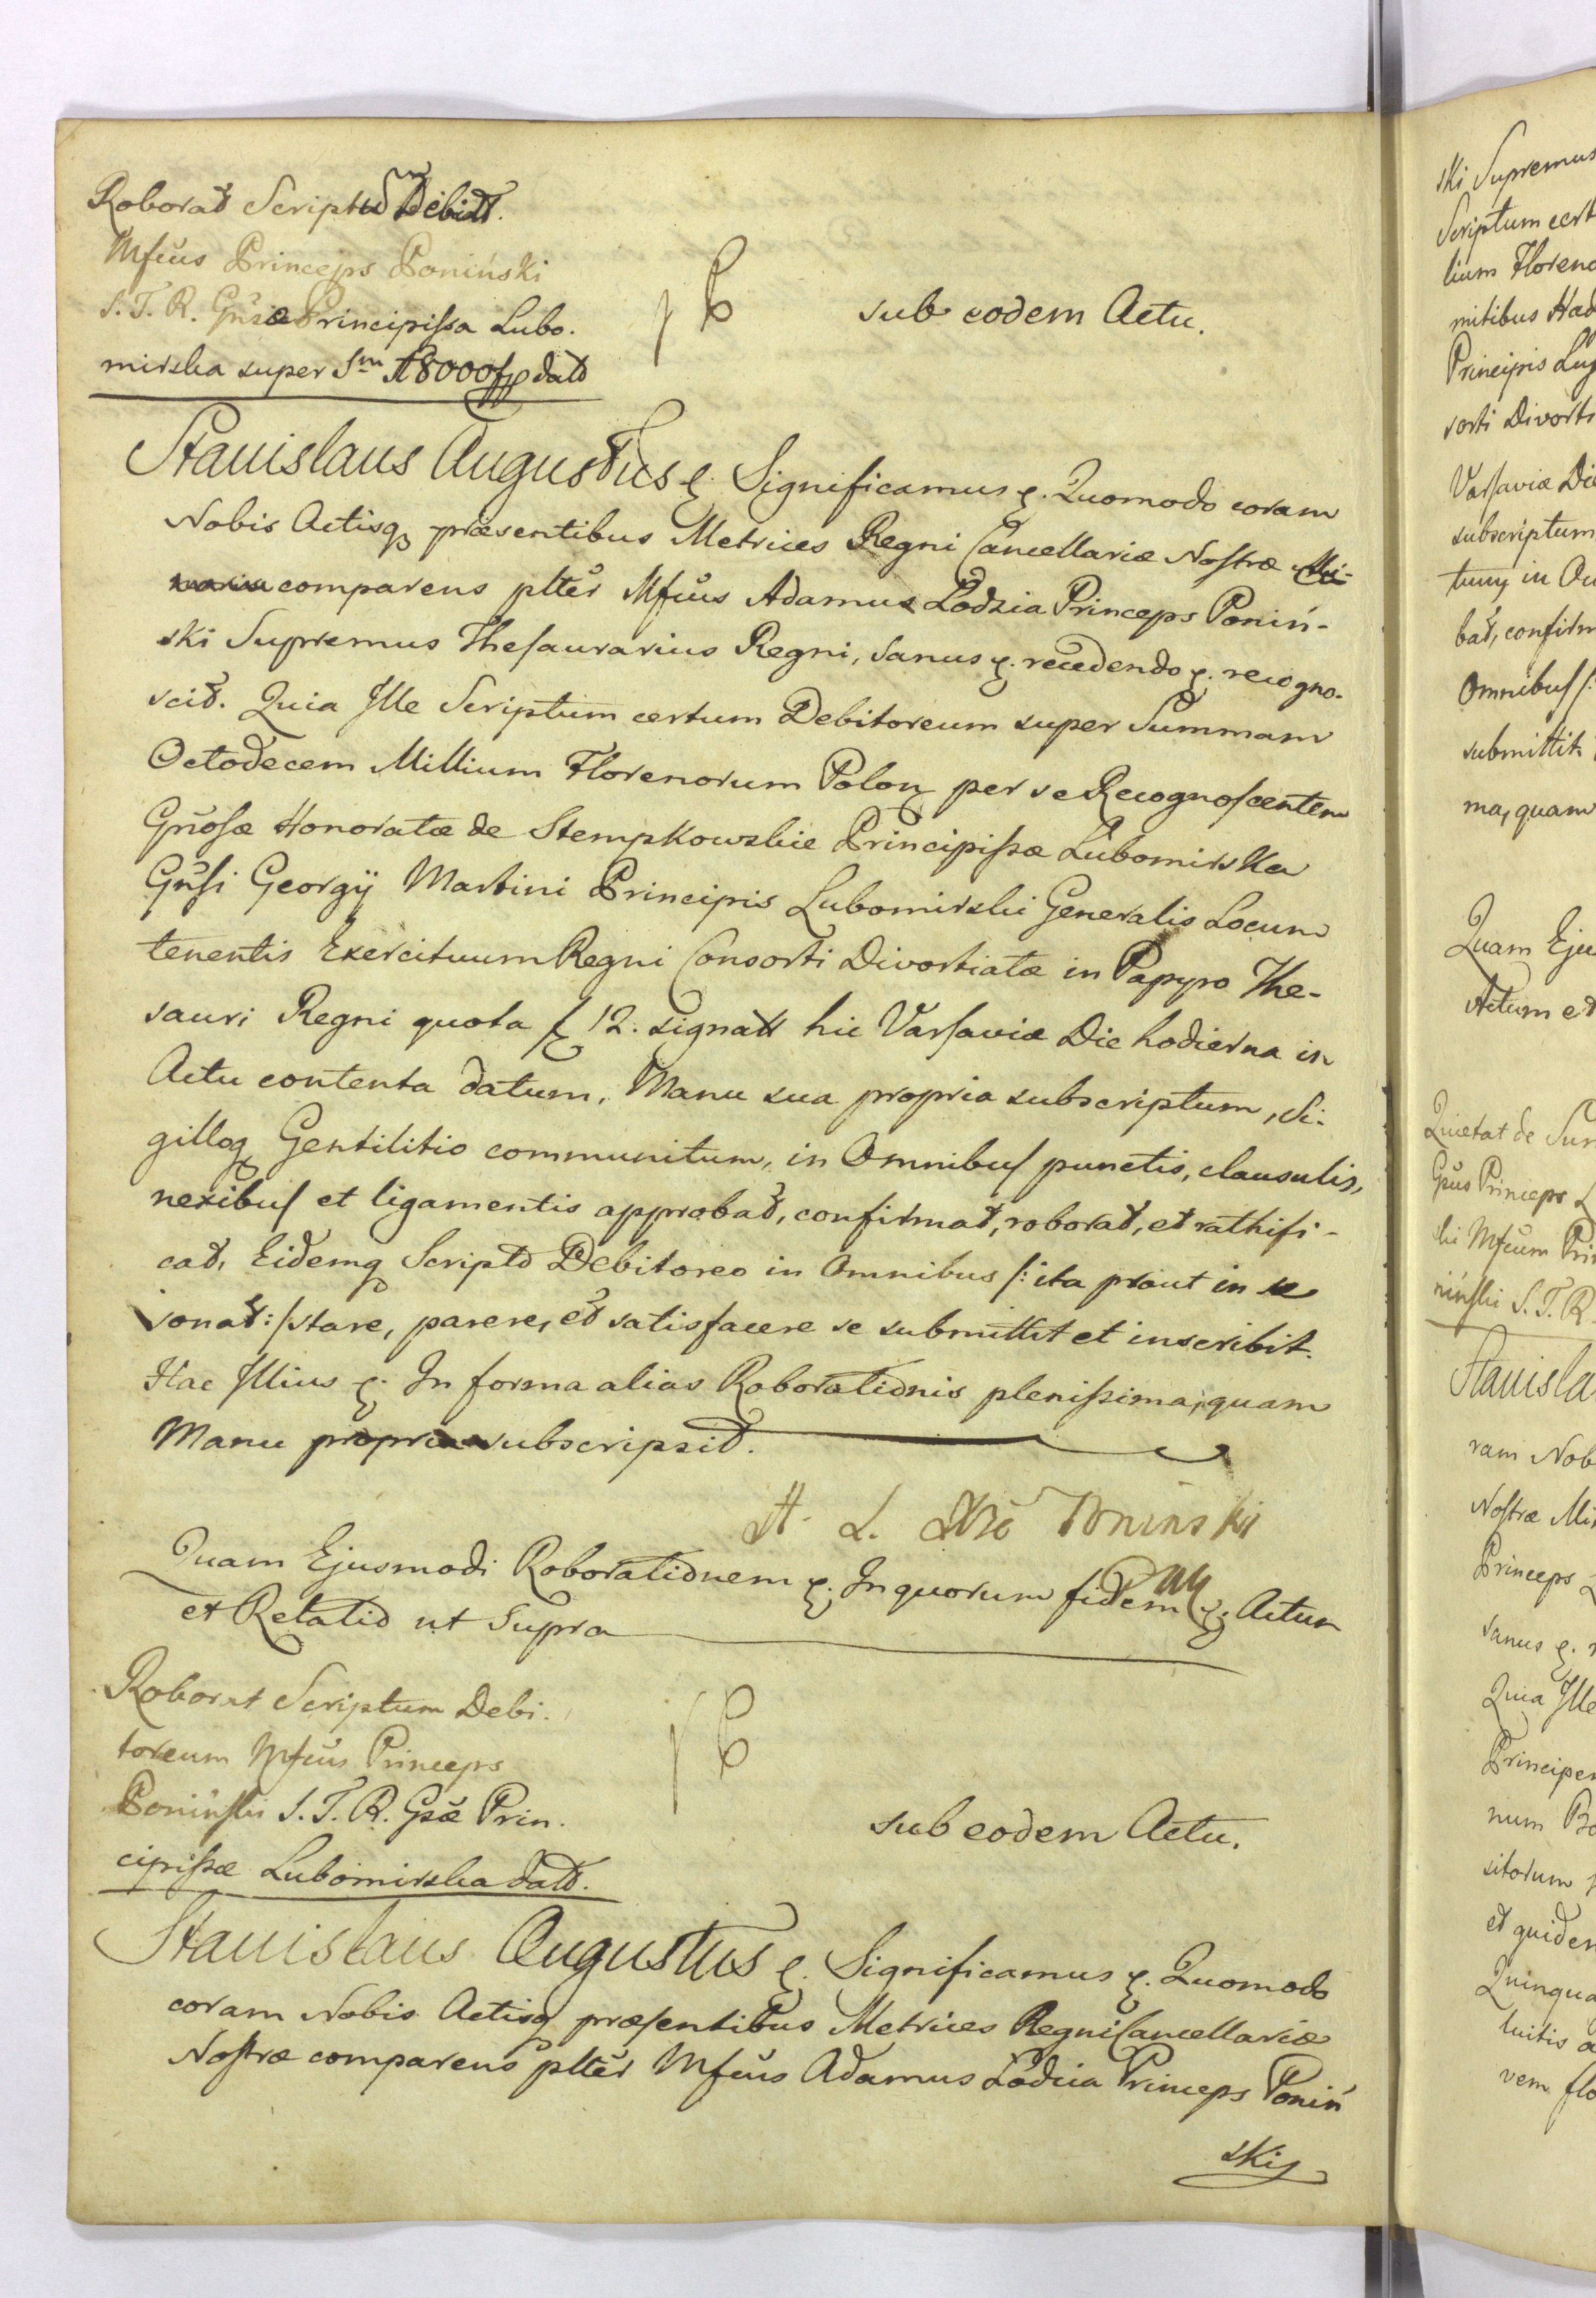 Roborat Scriptu Debitt.
Mfcus Princeps Poniński
S. T. R. Gnsæ Principissa Lubo.
mirska super Sm 18000 fp dat
sub eodem Actu.
Stanislaus Augustus &. Significamus &. Quomodo coram
Nobis Actisq præsentibus Metrices Regni Cancellariæ Nostræ
comparens plter Mfcus Adamus Lodzia Princeps Poniń-
ski Supremus Thesaurarius Regni, Sanus &. recedendo &. recogno-
scit. Quia Ille Scriptum certum Debitoreum super Summam
Octodecem Millium Florenorum Polon per se Recognoscentem
Gnosæ Honoratæ de Stempkowskie Principissæ Lubomirska
Gnsi Georgij Martini Principis Lubomirski Generalis Locum
tenentis Exercituum Regni Consorti Divortiatæ in Papyro The-
sauri Regni quota f 12. signatt hic Varsaviæ Die hodierna in
Actu contenta datum, Manu sua propria subscriptum, Si-
gilloq Gentilitio communitum, in Omnibus punctis, clausulis,
nexibus et ligamentis approbat, confirmat, roborat, et rathifi-
cat, Eidemq Scripto Debitoreo in Omnibus /: ita prout in se
sonat :/ stare, parere, et satisfacere se submittit et inscribit.
Hac Illius &. In forma alias Roborationis plenissima, quam
Manu propria subscripsit.
A. L. Poninski
Quam Ejusmodi Roborationem &. In quorum fidem &. Actum
et Relatio ut Supra
Roborat Scriptum Debi-
toreum Mfcus Princeps
Poninski S. T. R. Gsæ Prin-
cipissæ Lubomirska dat.
sub eodem Actu.
Stanislaus Augustus &. Significamus &. Quomodo
coram Nobis Actisq præsentibus Metrices Regni Cancellariæ
Nostræ comparens plter Mfcus Adamus Lodzia Princeps Poniń
ski
ski Supremus
Scriptum cert
lium Floreno
mitibus Had
Principis Lu
sorti Divorti
Varsaviæ Die
subscriptum
tum in
bat, confirm
Omnibus /:
submittit
ma, quam
Quam Eju
Actum et
Quietat de Su
Gsus Princeps L
ki Mfcum Prin
niński S. T. R.
Stanisla
ram Nob
Nostræ Mi
Princeps
Sanus &. r
Quia Ille
Principem
num Bo
sitorum
et quidem
Quinqua
luitis a
vem flo